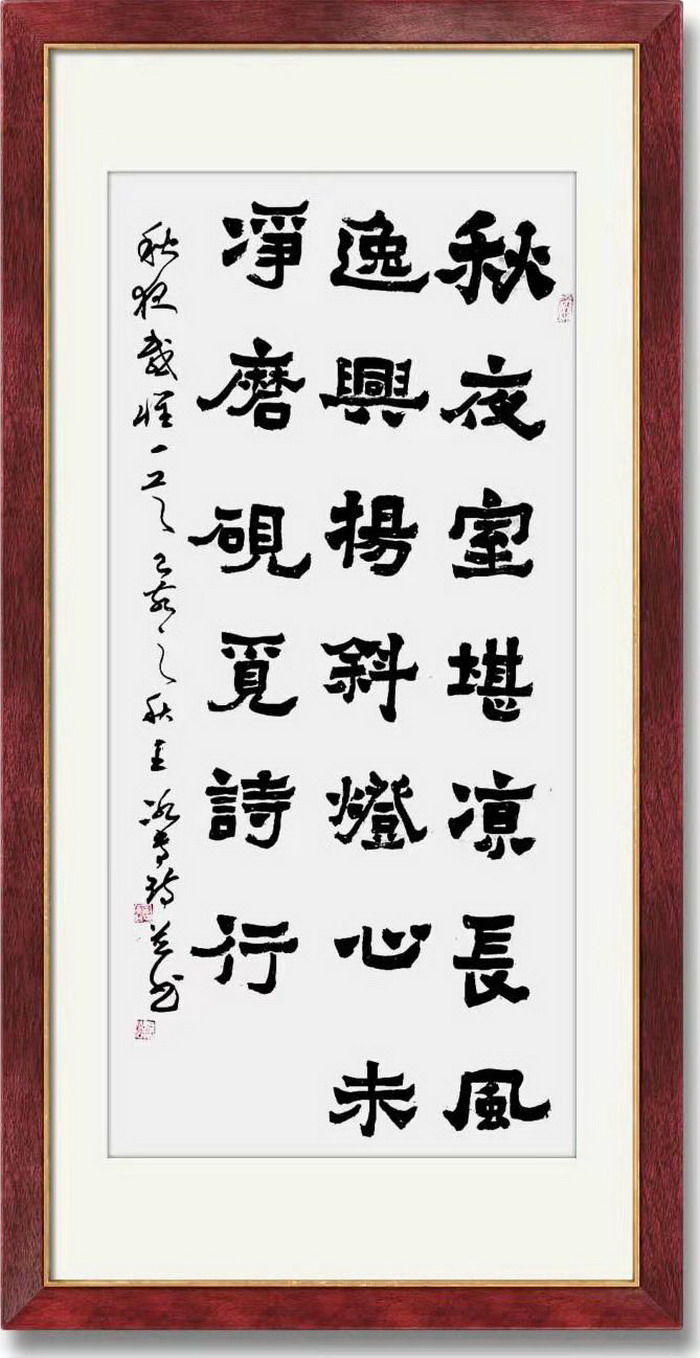 秋夜室堪凉長風
逸興揚斜燈心未
凈磨硯覓詩行
秋夜感懷一首 己亥之秋 王